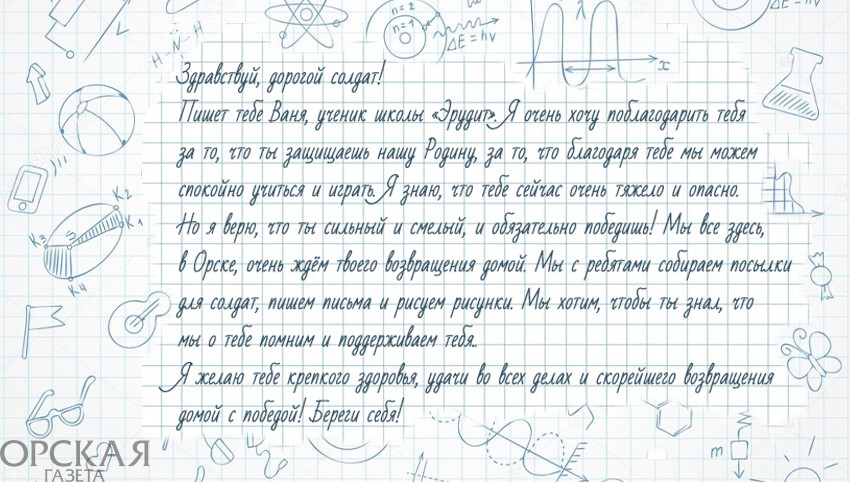 Здравствуй, дорогой солдат!
Пишет тебе Ваня, ученик школы «Эрудит». Я очень хочу поблагодарить тебя
за то, что ты защищаешь нашу Родину, за то, что благодаря тебе мы можем
спокойно учиться и играть. Я знаю, что тебе сейчас очень тяжело и опасно.
Но я верю, что ты сильный и смелый, и обязательно победишь! Мы все здесь,
в Орске, очень ждём твоего возвращения домой. Мы с ребятами собираем посылки
для солдат, пишем письма и рисуем рисунки. Мы хотим, чтобы ты знал, что
мы о тебе помним и поддерживаем тебя..
Я желаю тебе крепкого здоровья, удачи во всех делах и скорейшего возвращения
домой с победой! Береги себя!
n=2
n=1
ΔE=hν
λ
x
ΔE=hν
H-N-H
K2
K3
S
K1
K4
m
ОРСКАЯ
ГАЗЕТА